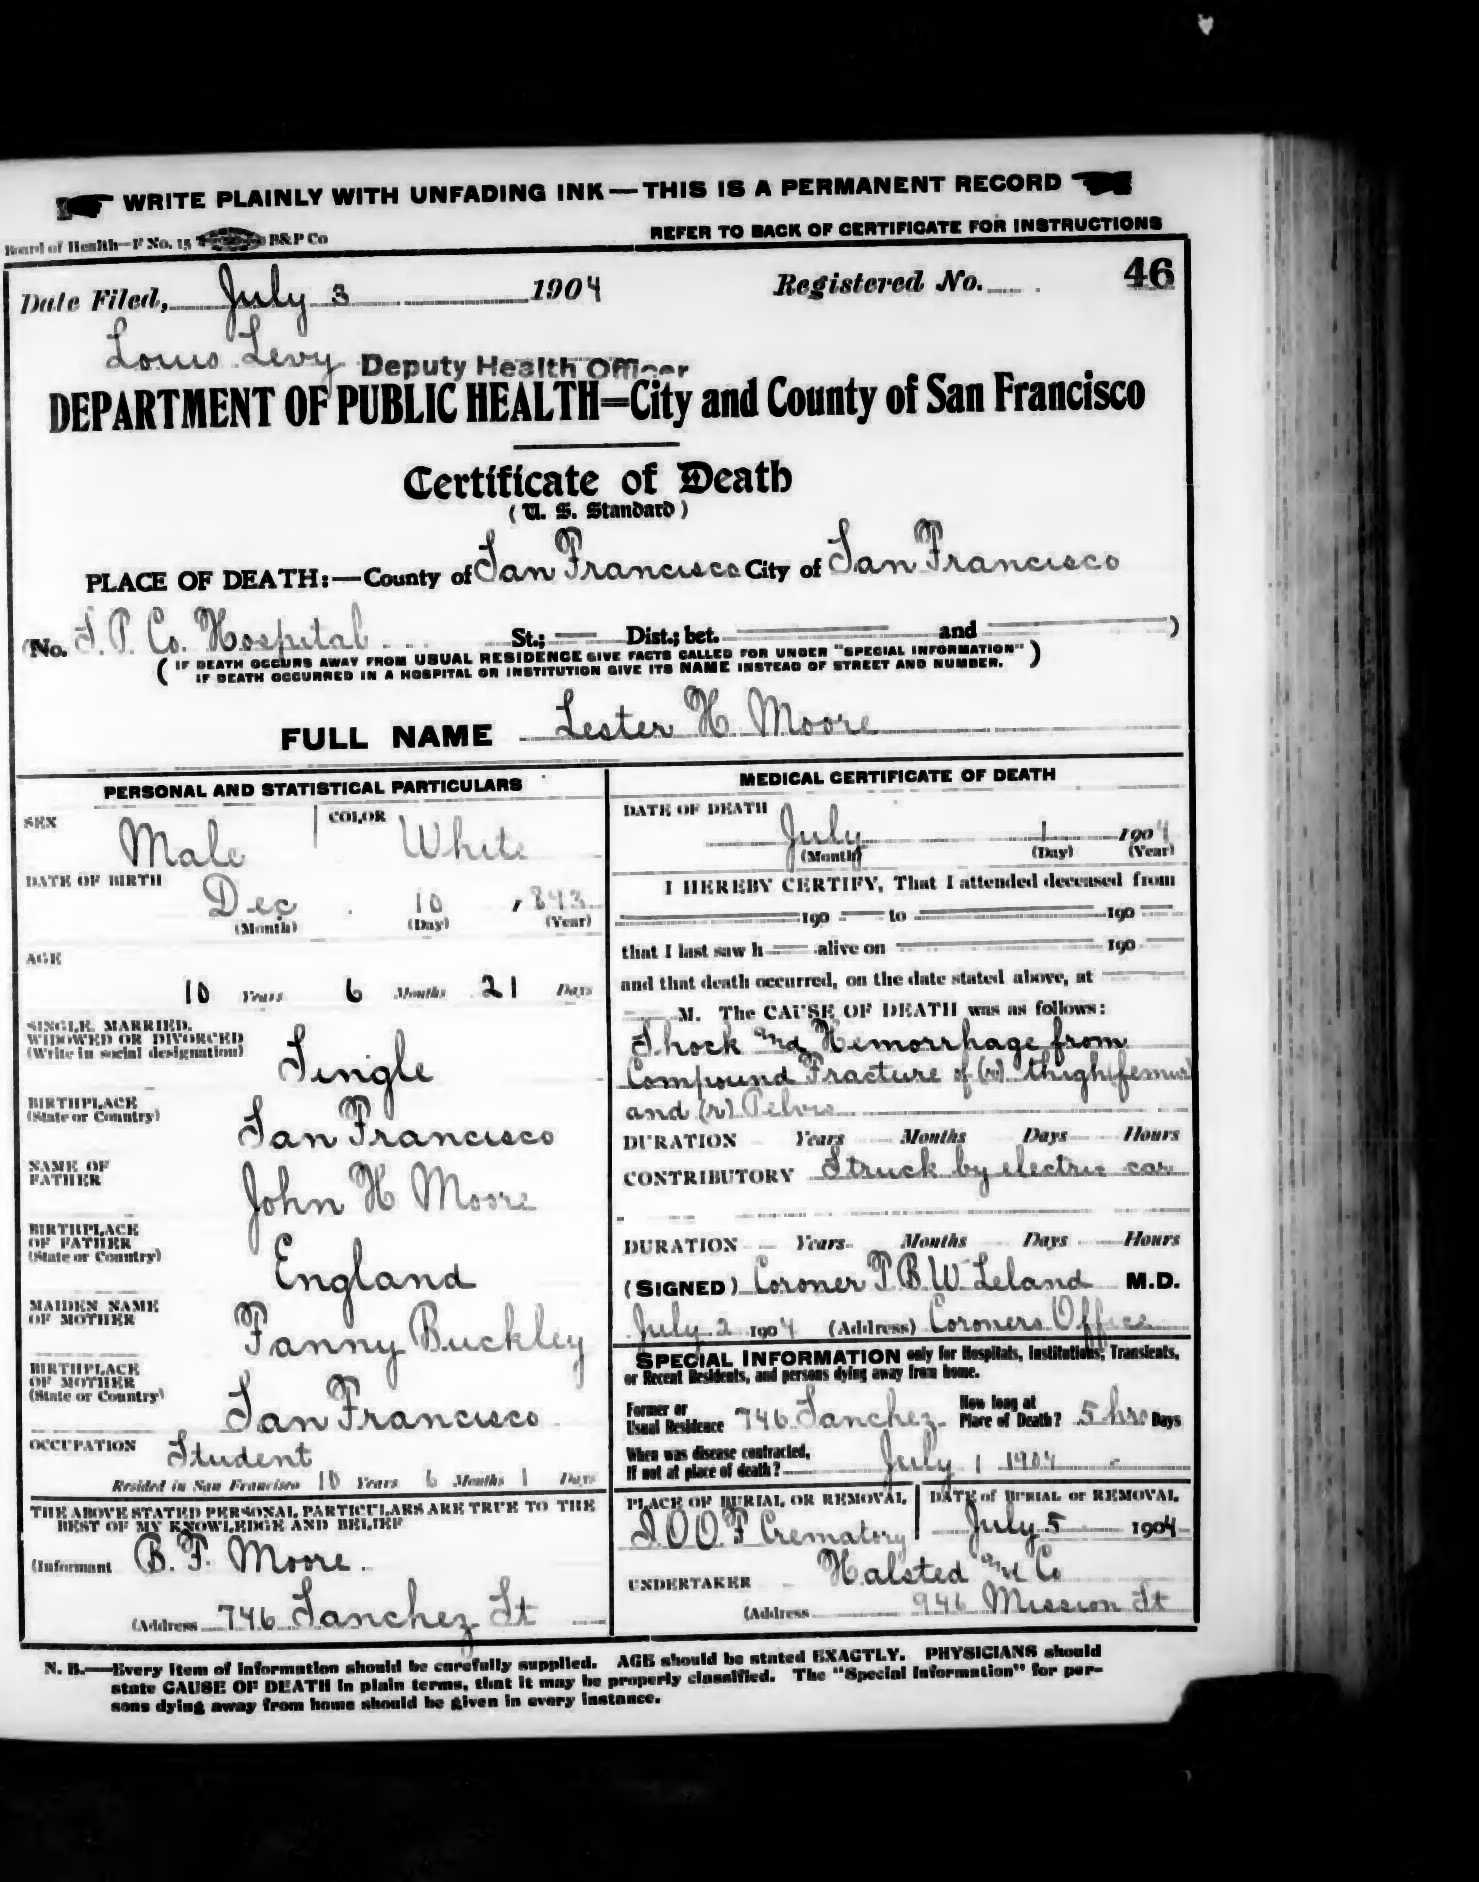 WRITE PLAINLY WITH UNFADING INK—THIS IS A PERMANENT RECORD
Board of Health—F No. 15 B&P Co
REFER TO BACK OF CERTIFICATE FOR INSTRUCTIONS
Date Filed, July 3 1904 Registered No. 46
Louis Levy Deputy Health Officer
DEPARTMENT OF PUBLIC HEALTH=City and County of San Francisco
Certificate of Death
(U. S. Standard)
PLACE OF DEATH:—County of San Francisco City of San Francisco
(No. S. P. Co. Hospital St.; Dist.; bet. and )
(IF DEATH OCCURS AWAY FROM USUAL RESIDENCE GIVE FACTS CALLED FOR UNDER "SPECIAL INFORMATION"
IF DEATH OCCURRED IN A HOSPITAL OR INSTITUTION GIVE ITS NAME INSTEAD OF STREET AND NUMBER.)
FULL NAME Lester H Moore
PERSONAL AND STATISTICAL PARTICULARS
SEX Male COLOR White
DATE OF BIRTH
Dec 10 , 893
(Month) (Day) (Year)
AGE
10 Years 6 Months 21 Days
SINGLE, MARRIED,
WIDOWED OR DIVORCED
(Write in social designation)
Single
BIRTHPLACE
(State or Country)
San Francisco
NAME OF
FATHER
John H Moore
BIRTHPLACE
OF FATHER
(State or Country)
England
MAIDEN NAME
OF MOTHER
Fanny Buckley
BIRTHPLACE
OF MOTHER
(State or Country)
San Francisco
OCCUPATION Student
Resided in San Francisco 10 Years 6 Months 1 Days
THE ABOVE STATED PERSONAL PARTICULARS ARE TRUE TO THE
BEST OF MY KNOWLEDGE AND BELIEF
(Informant B. F. Moore.
(Address 746 Sanchez St
MEDICAL CERTIFICATE OF DEATH
DATE OF DEATH
July 1 1904
(Month) (Day) (Year)
I HEREBY CERTIFY, That I attended deceased from
190 to 190
that I last saw h alive on 190
and that death occurred, on the date stated above, at
M. The CAUSE OF DEATH was as follows:
Shock and Hemorrhage from
Compound Fracture of (r) thigh (femur)
and (r) Pelvis
DURATION Years Months Days Hours
CONTRIBUTORY Struck by electric car
DURATION Years Months Days Hours
(SIGNED) Coroner T B W Leland M.D.
July 2 1904 (Address) Coroners Office
SPECIAL INFORMATION only for Hospitals, Institutions, Transients,
or Recent Residents, and persons dying away from home.
Former or
Usual Residence 746 Sanchez
How long at
Place of Death? 5 hrs Days
When was disease contracted,
If not at place of death? July 1 1904
PLACE OF BURIAL OR REMOVAL
I O O F Crematory
DATE of BURIAL or REMOVAL
July 5 1904
UNDERTAKER Halsted and Co
(Address 946 Mission St
N. B.—Every item of information should be carefully supplied. AGE should be stated EXACTLY. PHYSICIANS should
state CAUSE OF DEATH in plain terms, that it may be properly classified. The "Special Information" for per-
sons dying away from home should be given in every instance.